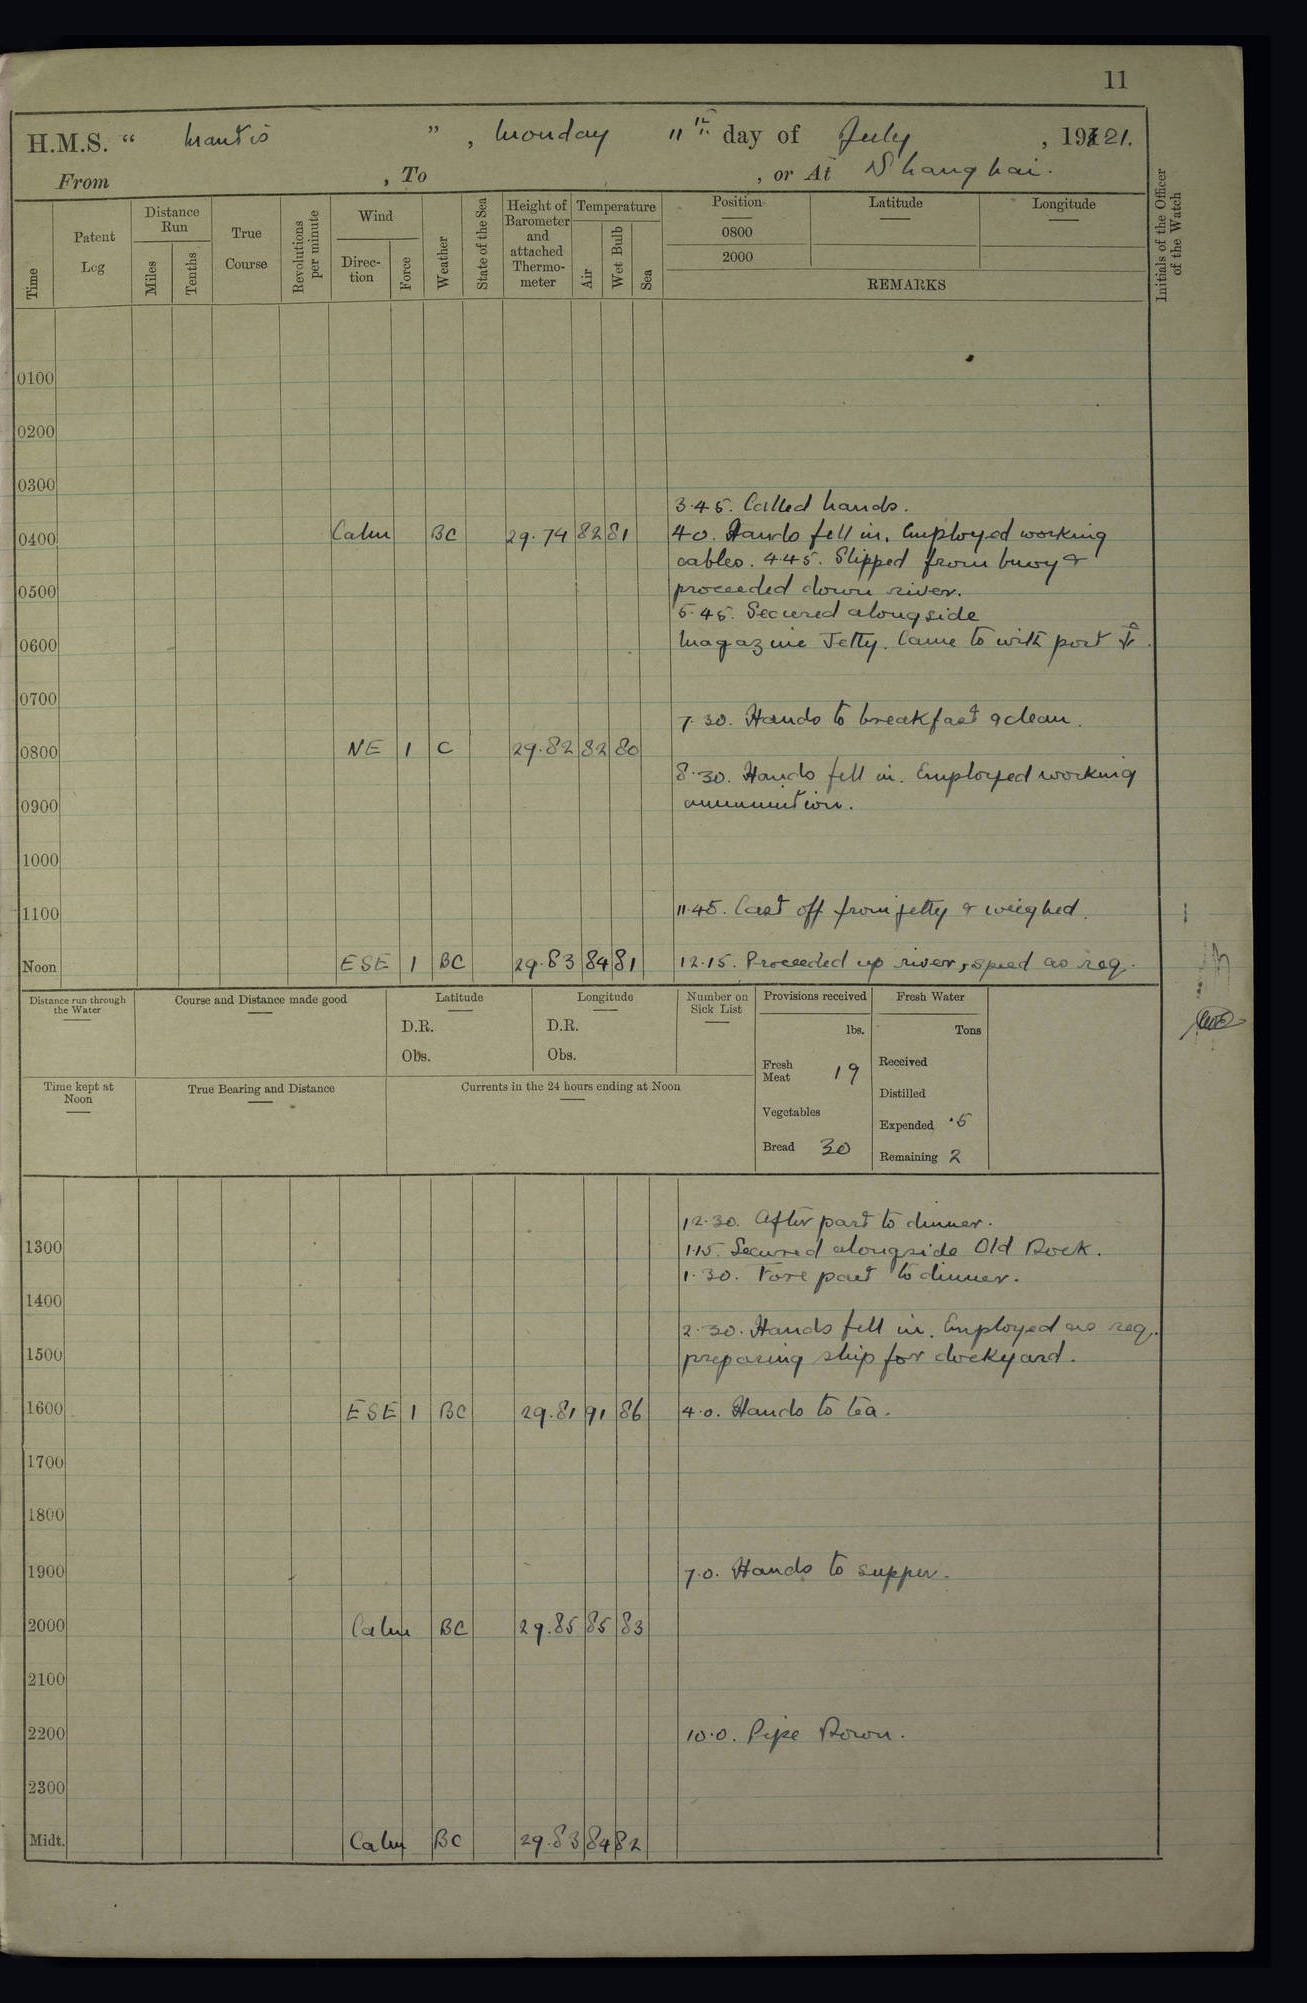 11
H.M.S. “ Mantis ”, Monday 11th day of July, 1921.
From , To , or At Shanghai.
Time
Patent Log
Distance Run
Miles
Tenths
True Course
Revolutions per minute
Wind
Direc-tion
Force
Weather
State of the Sea
Height of Barometer and attached Thermo-meter
Temperature
Air
Wet Bulb
Sea
Position
0800
2000
Latitude
Longitude
REMARKS
Initials of the Officer of the Watch
0100
0200
0300
3.45. Called hands.
0400 Calm BC 29.74 82 81 4.0. Hands fell in. Employed working
cables. 4.45. Slipped from buoy &
0500 proceeded down river.
5.45. Secured alongside
0600 Magazine Jetty. Came to with port
0700
7.30. Hands to breakfast & clean.
0800 NE 1 C 29.82 82 80
8.30. Hands fell in. Employed working
0900 ammunition.
1000
1100 11.45. Cast off from jetty & weighed.
Noon ESE 1 BC 29.83 84 81 12.15. Proceeded up river, speed as req.
Distance run through the Water
Course and Distance made good
Latitude
D.R.
Obs.
Longitude
D.R.
Obs.
Number on Sick List
Provisions received
lbs.
Fresh Meat 19
Vegetables
Bread 30
Fresh Water
Tons
Received
Distilled
Expended .5
Remaining 2
Time kept at Noon
True Bearing and Distance
Currents in the 24 hours ending at Noon
12.30. After part to dinner.
1300 1.15. Secured alongside Old Dock.
1.30. Fore part to dinner.
1400
2.30. Hands fell in. Employed as req.
1500 preparing ship for dockyard.
1600 ESE 1 BC 29.81 91 86 4.0. Hands to tea.
1700
1800
1900 7.0. Hands to supper.
2000 Calm BC 29.85 85 83
2100
2200 10.0. Pipe Down.
2300
Midt. Calm BC 29.83 84 82